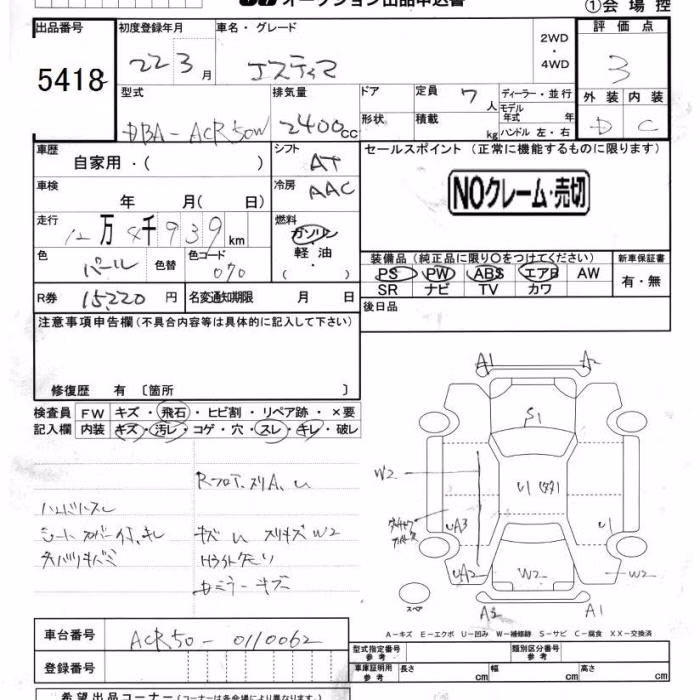 オークション出品申込書 ①会場控
出品番号 初度登録年月 車名・グレード 2WD ・ 4WD 評価点
5418 22 3月 エスティマ 3
型式 排気量 ドア 定員 7人 ディーラー・並行 外装 内装
DBA-ACR50W 2400cc 形状 積載 kg モデル年式 年 D C
ハンドル 左・右
車歴 シフト セールスポイント (正常に機能するものに限ります)
自家用・( ) AT
車検 冷房 NOクレーム・売切
年 月( 日) AAC
走行 燃料
12万4千939km ガソリン
色 色替 色コード 軽油 装備品(純正品に限り〇をつけてください) 新車保証書
パール 070 ・( ) PS PW ABS エアB AW 有・無
SR ナビ TV カワ
R券 15,220円 名変通知期限 月 日 後日品
注意事項申告欄(不具合内容等は具体的に記入して下さい)
修復歴 有 〔箇所 〕
検査員 FW キズ・飛石・ヒビ割・リペア跡・×要
記入欄 内装 キズ・汚レ・コゲ・穴・スレ・キレ・破レ
ハンドルスレ
シートカバー付、キレ
キズ U スリキズ W2
ミラーキズ
A1 A2
S1
W2
U1
UA3 U1
UA2 W2 W2
スペア
A3 A1
A-キズ E-エクボ U-凹み W-補修跡 S-サビ C-腐食 XX-交換済
車台番号 ACR50-0110062 型式指定番号 参考 類別区分番号 参考
登録番号 車庫証明用 参考 長さ cm 幅 cm 高さ cm
希望出品コーナー(コーナーは各会場により異なります)